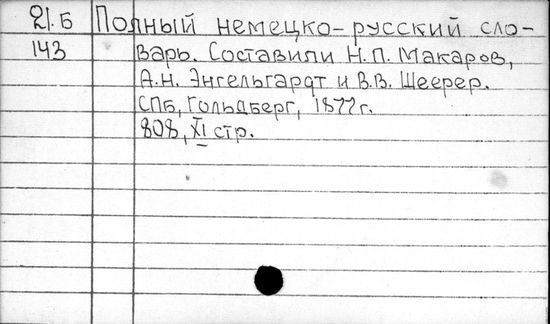 21.Б Полный немецко-русский сло-
143 варь. Составили Н.П. Макаров,
А.Н. Энгельгардт и В.В. Шеерер.
СПб, Гольдберг, 1877г.
808, XI стр.